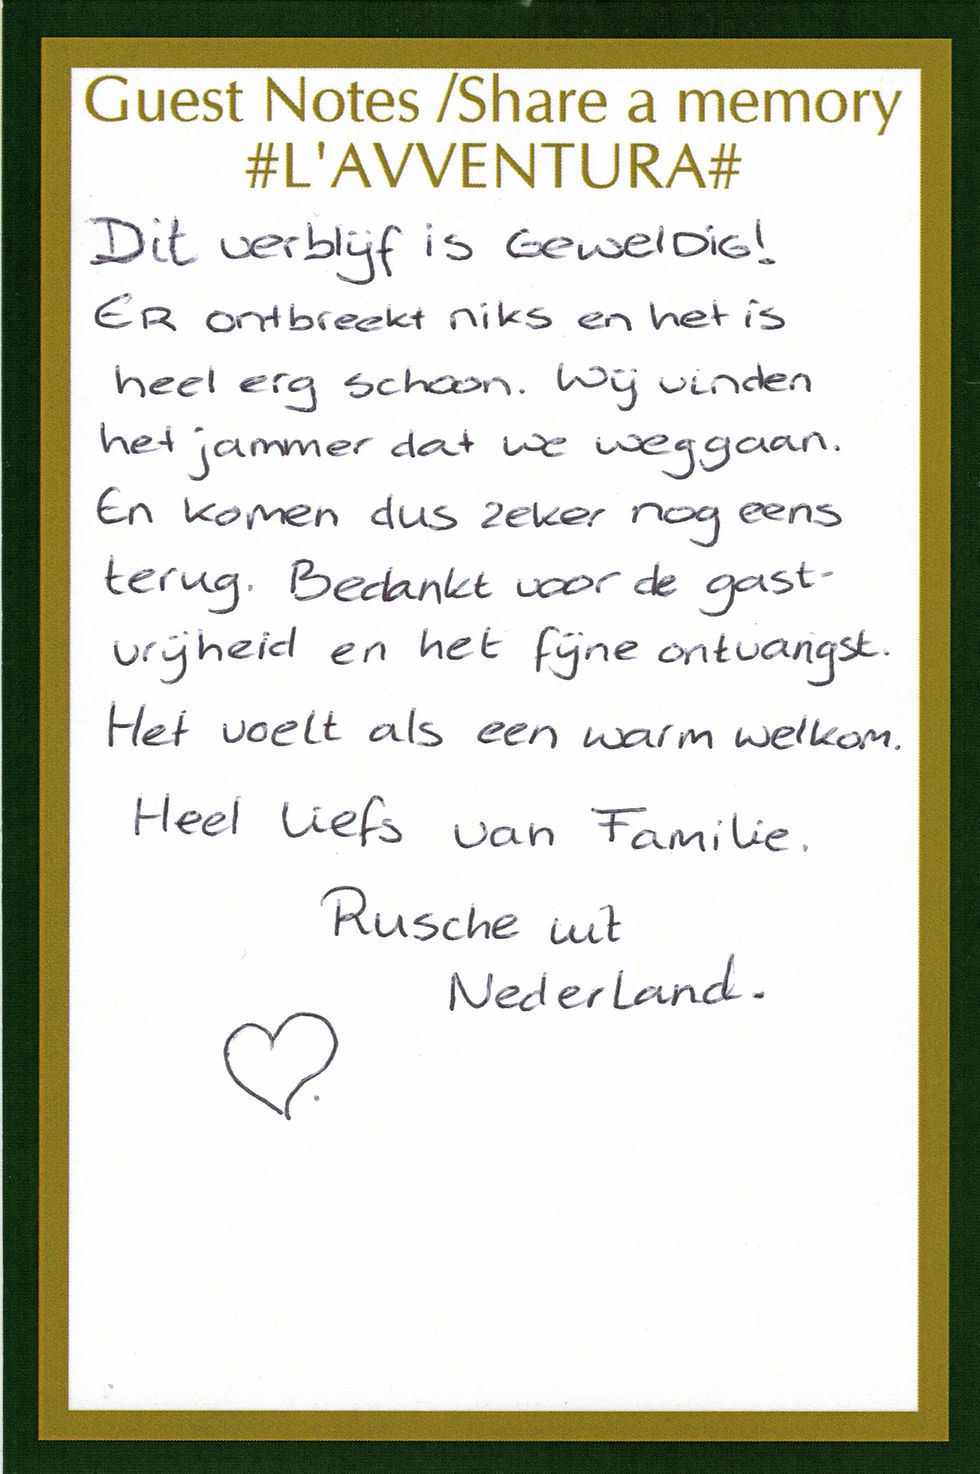 Guest Notes /Share a memory
#L'AVVENTURA#
Dit verblijf is Geweldig!
Er ontbreekt niks en het is
heel erg schoon. Wij vinden
het jammer dat we weggaan.
En komen dus zeker nog eens
terug. Bedankt voor de gast-
vrijheid en het fijne ontvangst.
Het voelt als een warm welkom.
Heel liefs van Familie.
Rusche uit
Nederland.